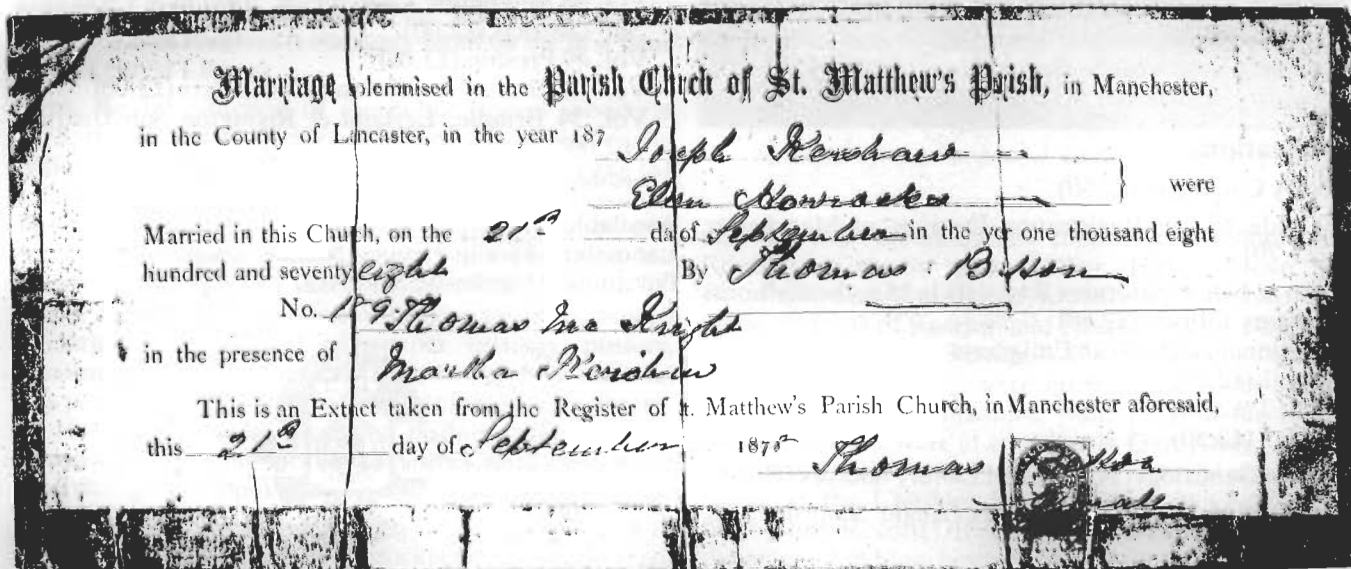 Marriage solemnised in the Parish Church of St. Matthew's Parish, in Manchester,
in the County of Lancaster, in the year 187
Joseph Kershaw
Ellen
were
Married in this Church, on the 21st day of September in the year one thousand eight
hundred and seventy eight By Thomas
No. 189 Thomas Mc Knight
in the presence of
Martha Kershaw
This is an Extract taken from the Register of St. Matthew's Parish Church, in Manchester aforesaid,
this 21st day of September 1878 Thomas